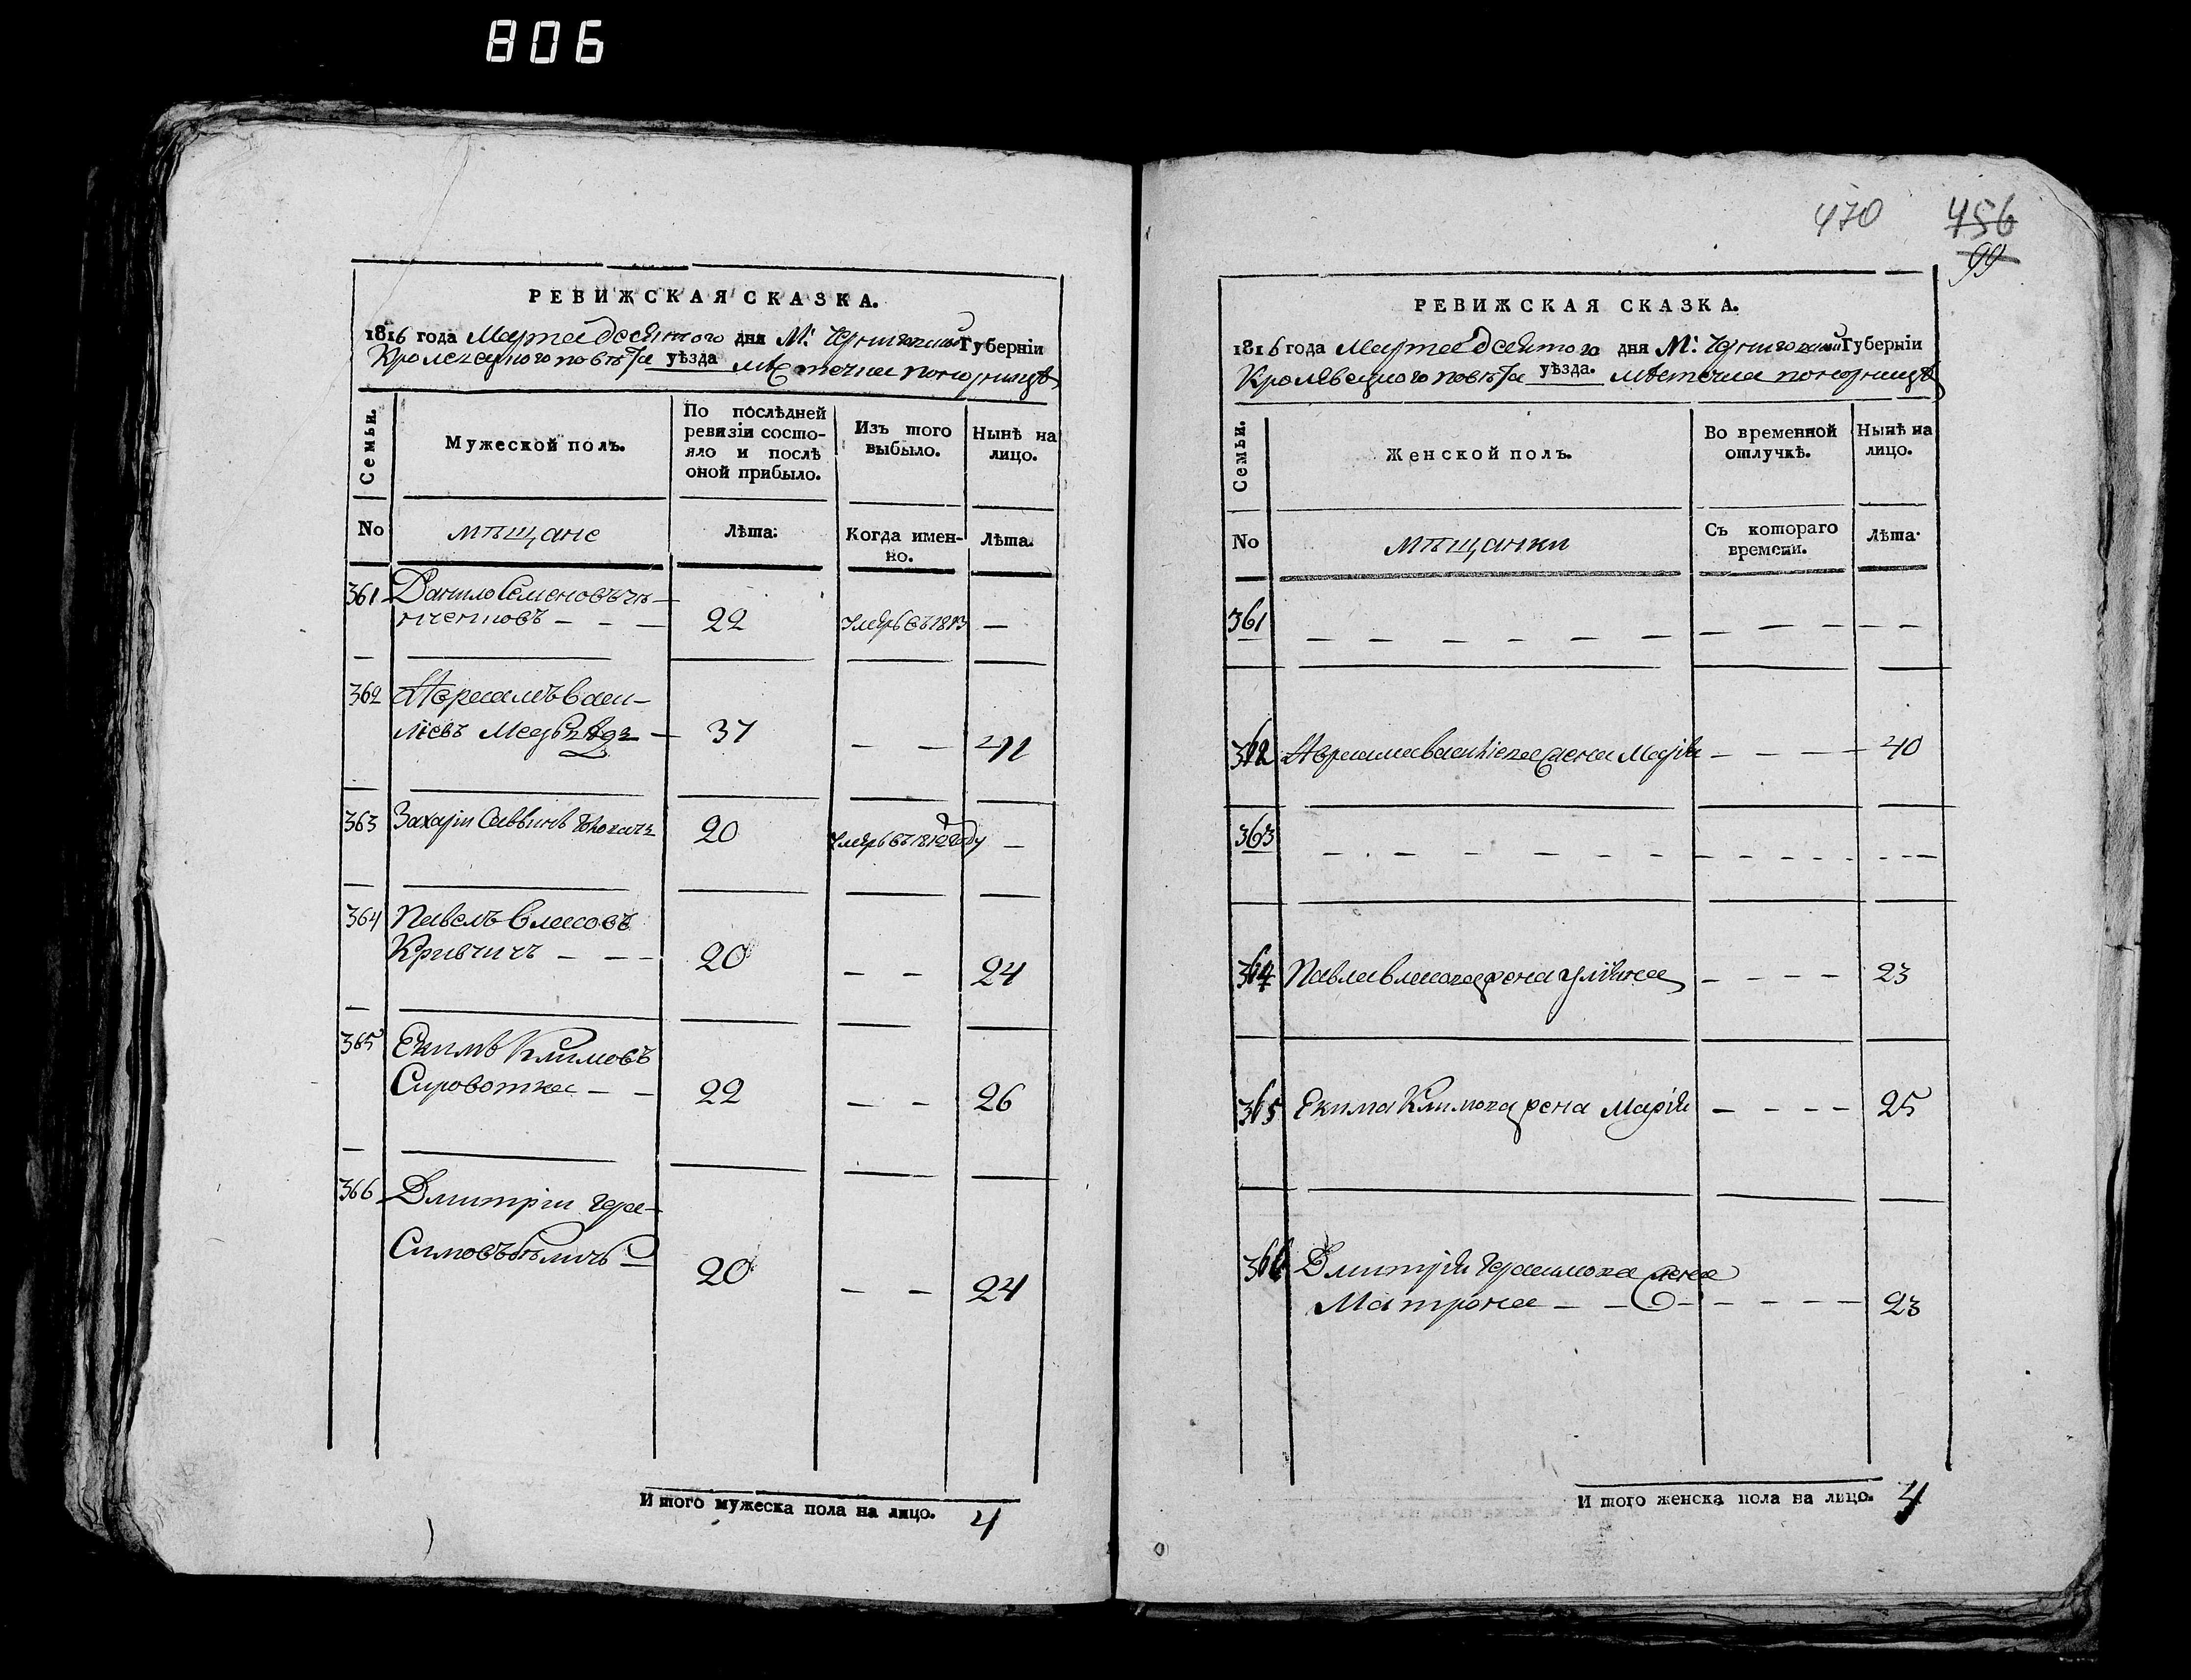 806
РЕВИЖСКАЯ СКАЗКА.
1816 года Марта десятого дня М. Черниговской Губерніи
Кролевецкого повѣта уѣзда мѣстечка понорницѣ
Семьи.
Мужеской полъ.
По послѣдней
ревизіи состо-
яло и послѣ
оной прибыло.
Изъ того
выбыло.
Нынѣ на
лицо.
No
мѣщане
Лѣта:
Когда имен-
но.
Лѣта.
361 Данило Семеновъ
— — — 22 умеръ въ 1813 —
362 Абрамъ Васи-
лієвъ — 37 — — 41
363 Захарій Саввинъ 20 умеръ въ 1812 году —
364 Павелъ Власовъ
Кривчичъ — — — 20 — — 24
365 Екимъ Климовъ
Сировотка — — 22 — — 26
366 Дмитрій Гера-
симовъ 20 — — 24
И того мужеска пола на лицо. 4
470 456
99
РЕВИЖСКАЯ СКАЗКА.
1816 года Марта десятого дня М. Черниговской Губерніи
Кролевецкого повѣта уѣзда. мѣстечка понорницѣ
Семьи.
Женской полъ.
Во временной
отлучкѣ.
Нынѣ на
лицо.
No
мѣщанки
Съ котораго
времени.
Лѣта.
361 — — — — — — — — — — —
362 Абрама Василієва жена Марія — — — — 40
363 — — — — — — — — — — —
364 Павла Власова жена Уліяна — — — — 23
365 Екима Климова жена Марія — — — — 25
366 Дмитрія Герасимова жена
Матрона — — — — — — 23
И того женска пола на лицо. 4